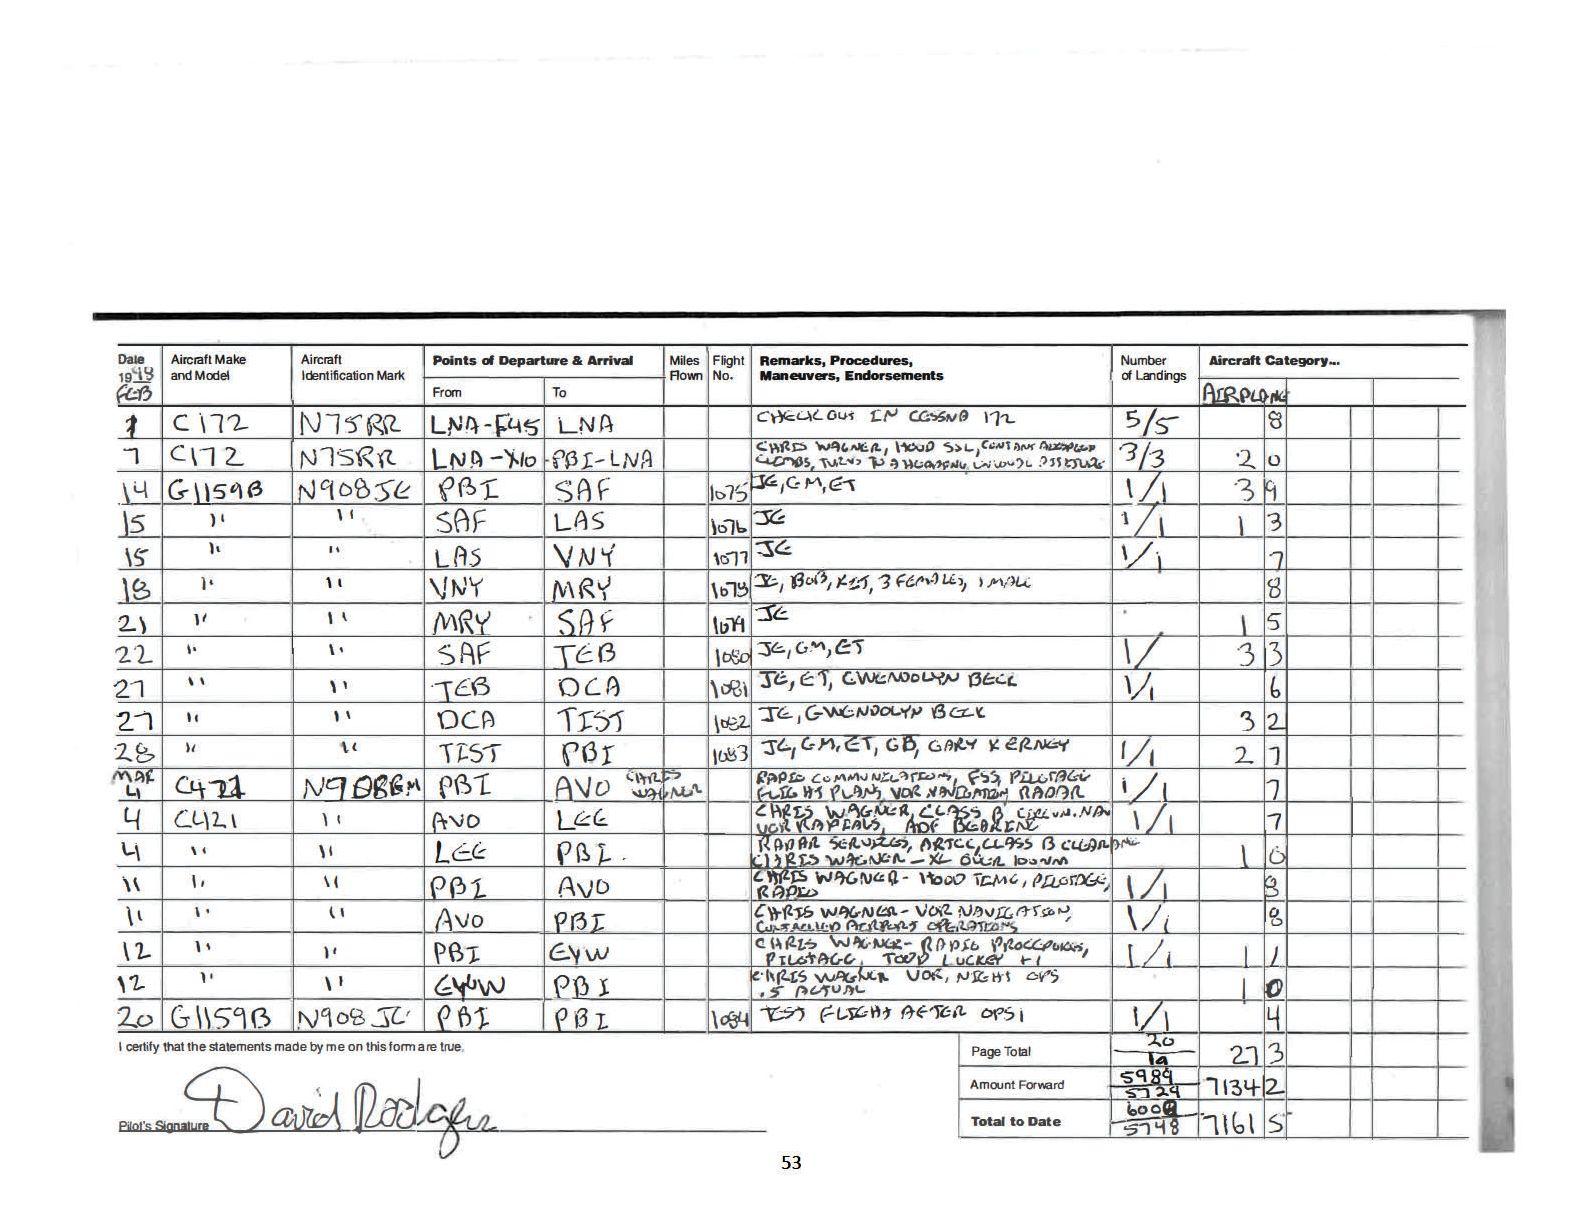 Date Aircraft Make Aircraft Points of Departure & Arrival Miles Flight Remarks, Procedures, Number Aircraft Category...
1998 and Model Identification Mark From To Flown No. Maneuvers, Endorsements of Landings
FEB AIRPLANE
1 C172 N75RR LNA-F45 LNA CHECK OUT IN CESSNA 172 5/5 8
7 C172 N75RR LNA-X10-PBI-LNA CHRIS WAGNER, HOOD S&L, CONTANT AIRSPEED 3/3 2 0
CLIMBS, TURNS TO A HEADING, UNUSUAL
14 G1159B N908JE PBI SAF 1075 JE, GM, ET 1/1 3 9
15 " " SAF LAS 1076 JE 1/1 1 3
15 " " LAS VNY 1077 JE 1/1 7
18 " " VNY MRY 1078 JE, BOB, KIT, 3 FEMALES, 1 MALE 8
21 " " MRY SAF 1079 JE 1 5
22 " " SAF TEB 1080 JE, GM, ET 1/ 3 3
27 " " TEB DCA 1081 JE, ET, GWENDOLYN BECK 1/1 6
27 " " DCA TIST 1082 JE, GWENDOLYN BECK 3 2
28 " " TIST PBI 1083 JE, GM, ET, GB, GARY KERNEY 1/1 2 7
MAR
4 C421 PBI AVO CHRIS WAGNER RADIO COMMUNICATIONS, FSS, PILOTAGE 1/1 7
FLIGHT PLANS, VOR NAVIGATION RADAR
4 C421 " AVO LEE CHRIS WAGNER, CLASS B CIRCUM. NAV 1/1 7
VOR RADIALS, ADF BEARING
4 " " LEE PBI. RADAR SERVICES, ARTCC, CLASS B CLEARANCE 1 0
CHRIS WAGNER - XC OVER 100NM
11 " " PBI AVO CHRIS WAGNER - HOOD TIME, PILOTAGE, 1/1 8
RADIO
11 " " AVO PBI CHRIS WAGNER - VOR NAVIGATION, 1/1 8
CONTROLLED AIRPORT OPERATIONS
12 " " PBI EYW CHRIS WAGNER - RADIO PROCEDURES, 1/1 1 1
PILOTAGE, TODD LUCKEY +1
12 " " EYW PBI CHRIS WAGNER VOR, NIGHT OPS 1 0
.5 ACTUAL
20 G1159B N908JE PBI PBI 1084 TEST FLIGHT AFTER OPS 1 1/1 4
I certify that the statements made by me on this form are true. Page Total 20/19 27 3
Amount Forward 5989/5729 7134 2
Pilot's Signature David Rodgers Total to Date 6009/5748 7161 5
53